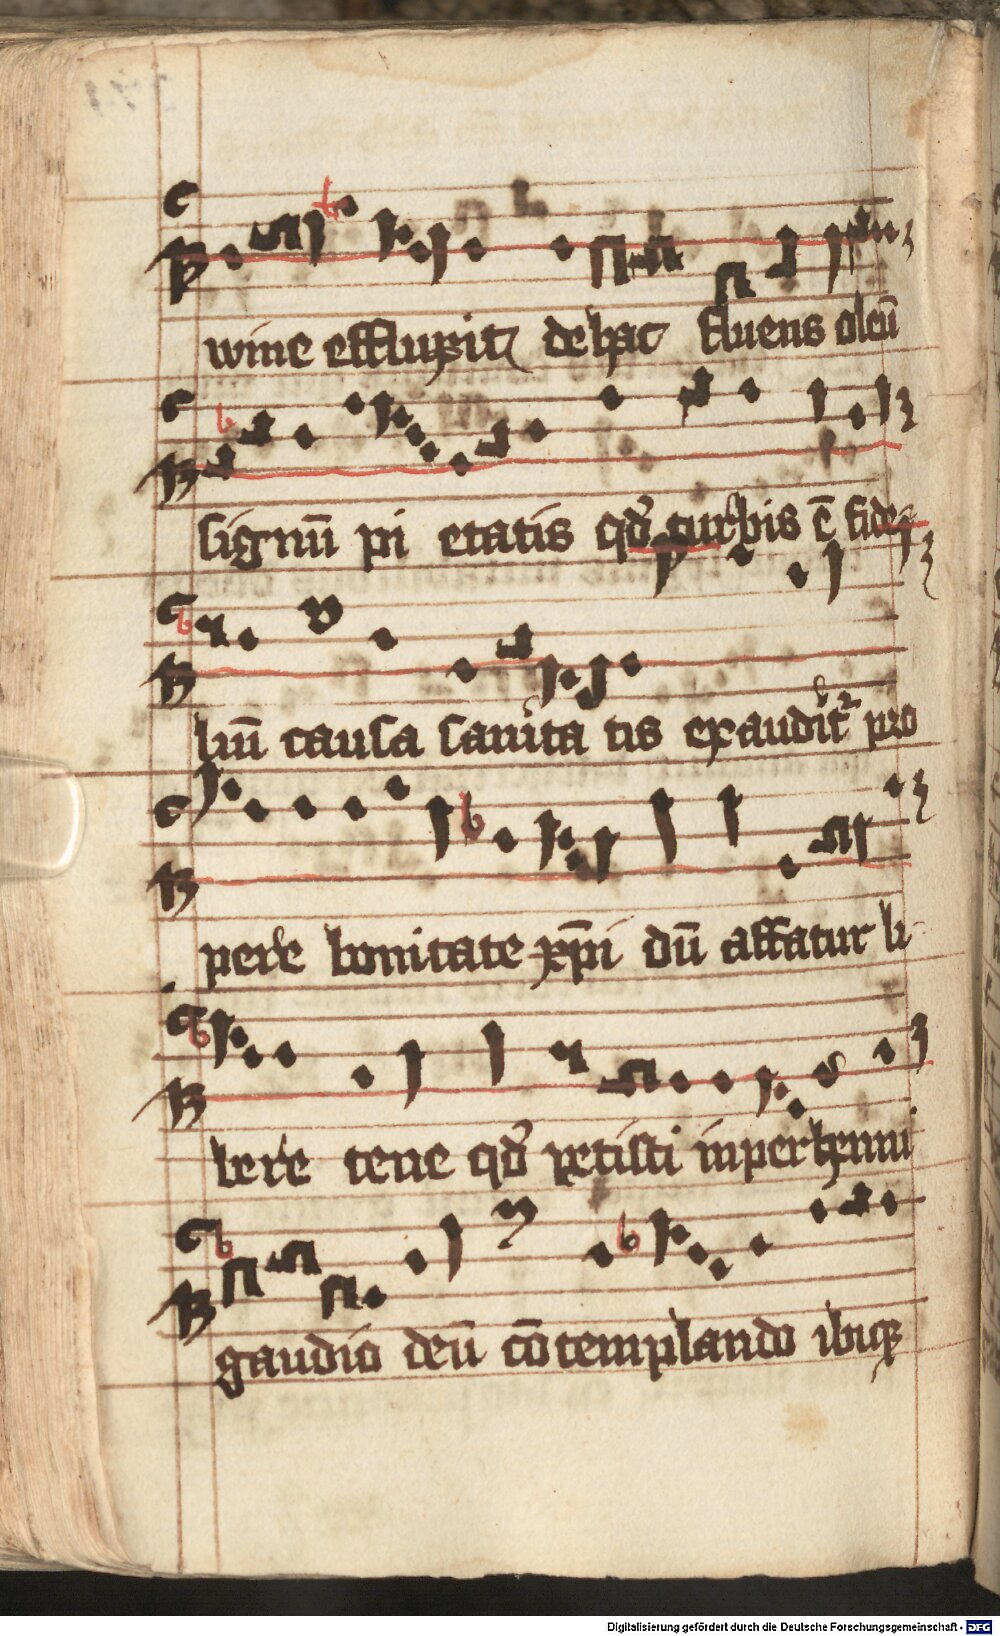 wine effluxit de hac fluens oleū
signū pi etatis qd̕ turbis ē fide
liū causa sanita tis exaudit᷑ pro
pere bonitate xp̄i dū affatur li
bere tene qd̕ petisti in perhenni
gaudio deū cōtemplando ibiqꝫ
Digitalisierung gefördert durch die Deutsche Forschungsgemeinschaft - DFG